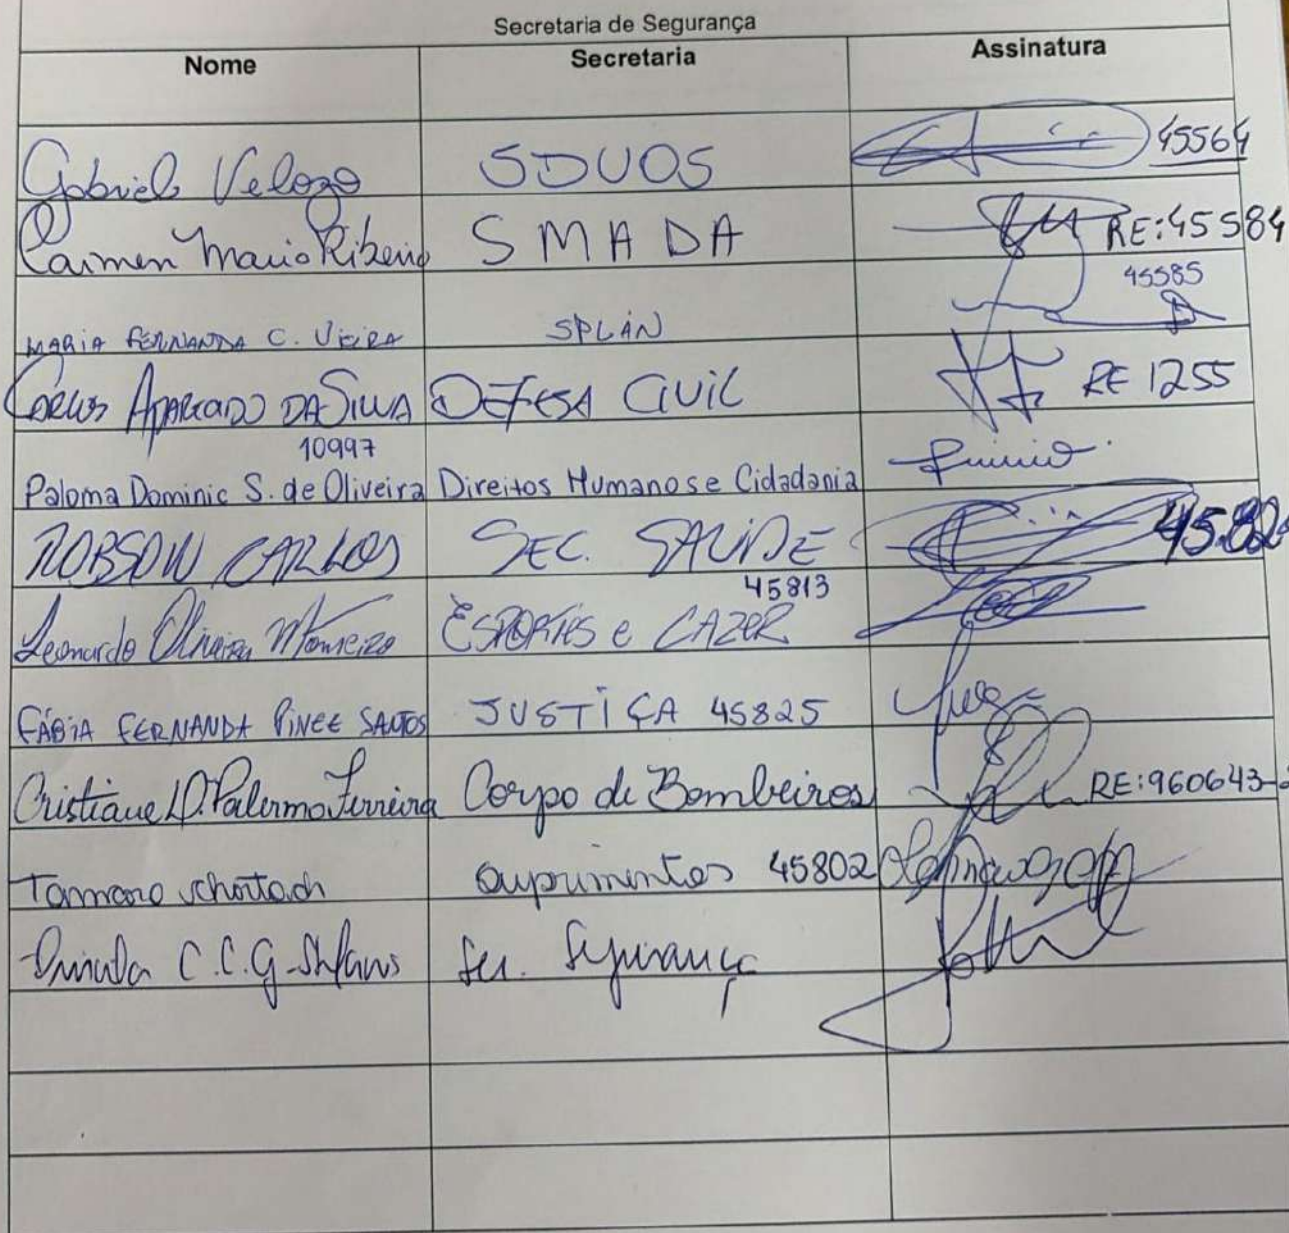 Secretaria de Segurança
Nome Secretaria Assinatura
Gabriel Velozo SDUOS 45564
Carmen Maria Ribeiro SMADA RE:45584
45585
MARIA FERNANDA C. VIEIRA SPLAN
CARLOS APARECIDO DA SILVA DEFESA CIVIL RE 1255
10997
Paloma Dominic S. de Oliveira Direitos Humanos e Cidadania
ROBSON CARLOS SEC. SAÚDE
45813
Leonardo Oliveira Monteiro ESPORTES e LAZER
FÁBIA FERNANDA SANTOS JUSTIÇA 45825
Cristiane D. Palermo Ferreira Corpo de Bombeiros RE:960643-
suprimentos 45802
C.C.G. Segurança